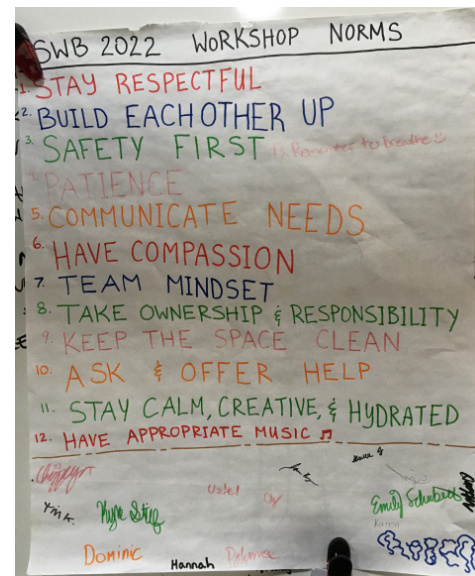 SWB 2022 WORKSHOP NORMS
1. STAY RESPECTFUL
2. BUILD EACH OTHER UP
3. SAFETY FIRST 13. Remember to breathe ☺
4. PATIENCE
5. COMMUNICATE NEEDS
6. HAVE COMPASSION
7. TEAM MINDSET
8. TAKE OWNERSHIP & RESPONSIBILITY
9. KEEP THE SPACE CLEAN
10. ASK & OFFER HELP
11. STAY CALM, CREATIVE, & HYDRATED
12. HAVE APPROPRIATE MUSIC ♫
Emily Schubert
Dominic
Hannah